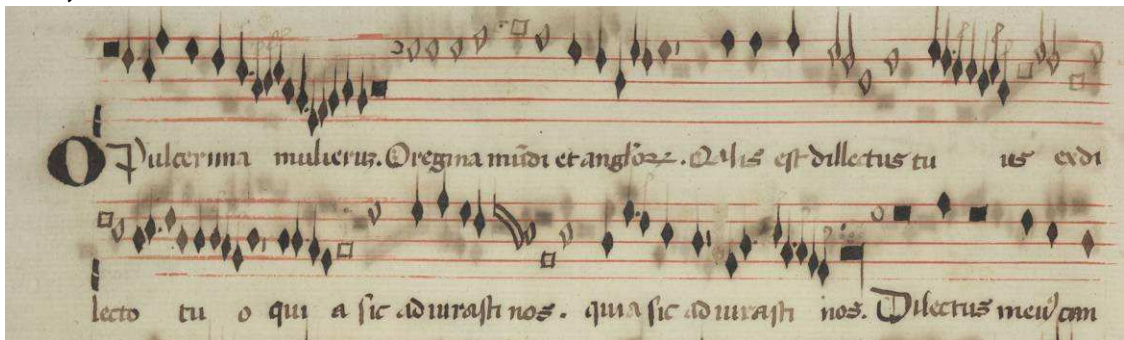 O Pulcerima mulieruz. O regina mūdi et anglor. Qalis est dillectus tu us exdi
lecto tu o qui a sic ad iurasti nos. quia sic ad iurasti nos. Dilectus meus can